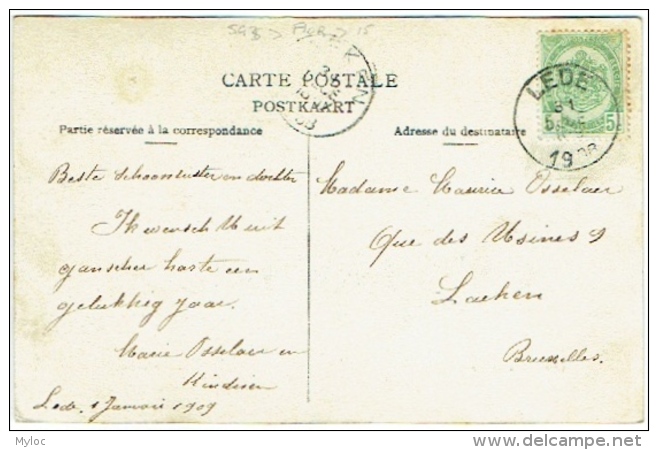 CARTE POSTALE
POSTKAART
Partie réservée à la correspondance
Adresse du destinataire
LEDE
31
5
1908
5
Beste schoonzuster en dochter
Ik wensch U uit
ganscher harte een
gelukkig jaar.
Marie Osselaer en
Kinderen
Lede, 1 Janvari 1909
Madame Maurice Osselaer
Que des Usines 9
Laeken
Bruxelles.
Myloc
delcampe.net